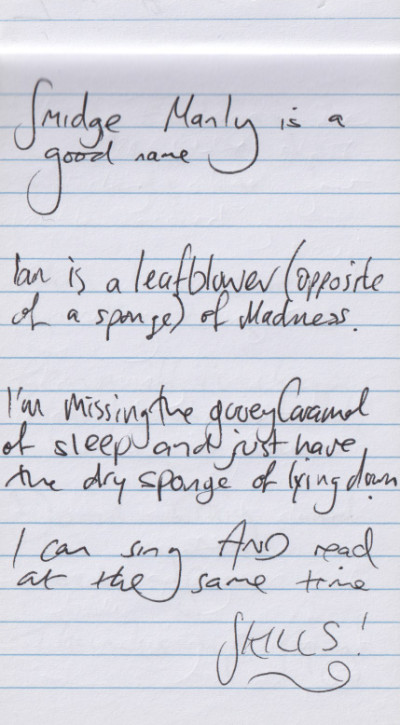 Smidge Manly is a
good name
Ian is a leafblower (opposite
of a sponge) of Madness.
I'm missing the gooey Caramel
of sleep and just have
the dry sponge of lying down
I can sing AND read
at the same time
SKILLS!